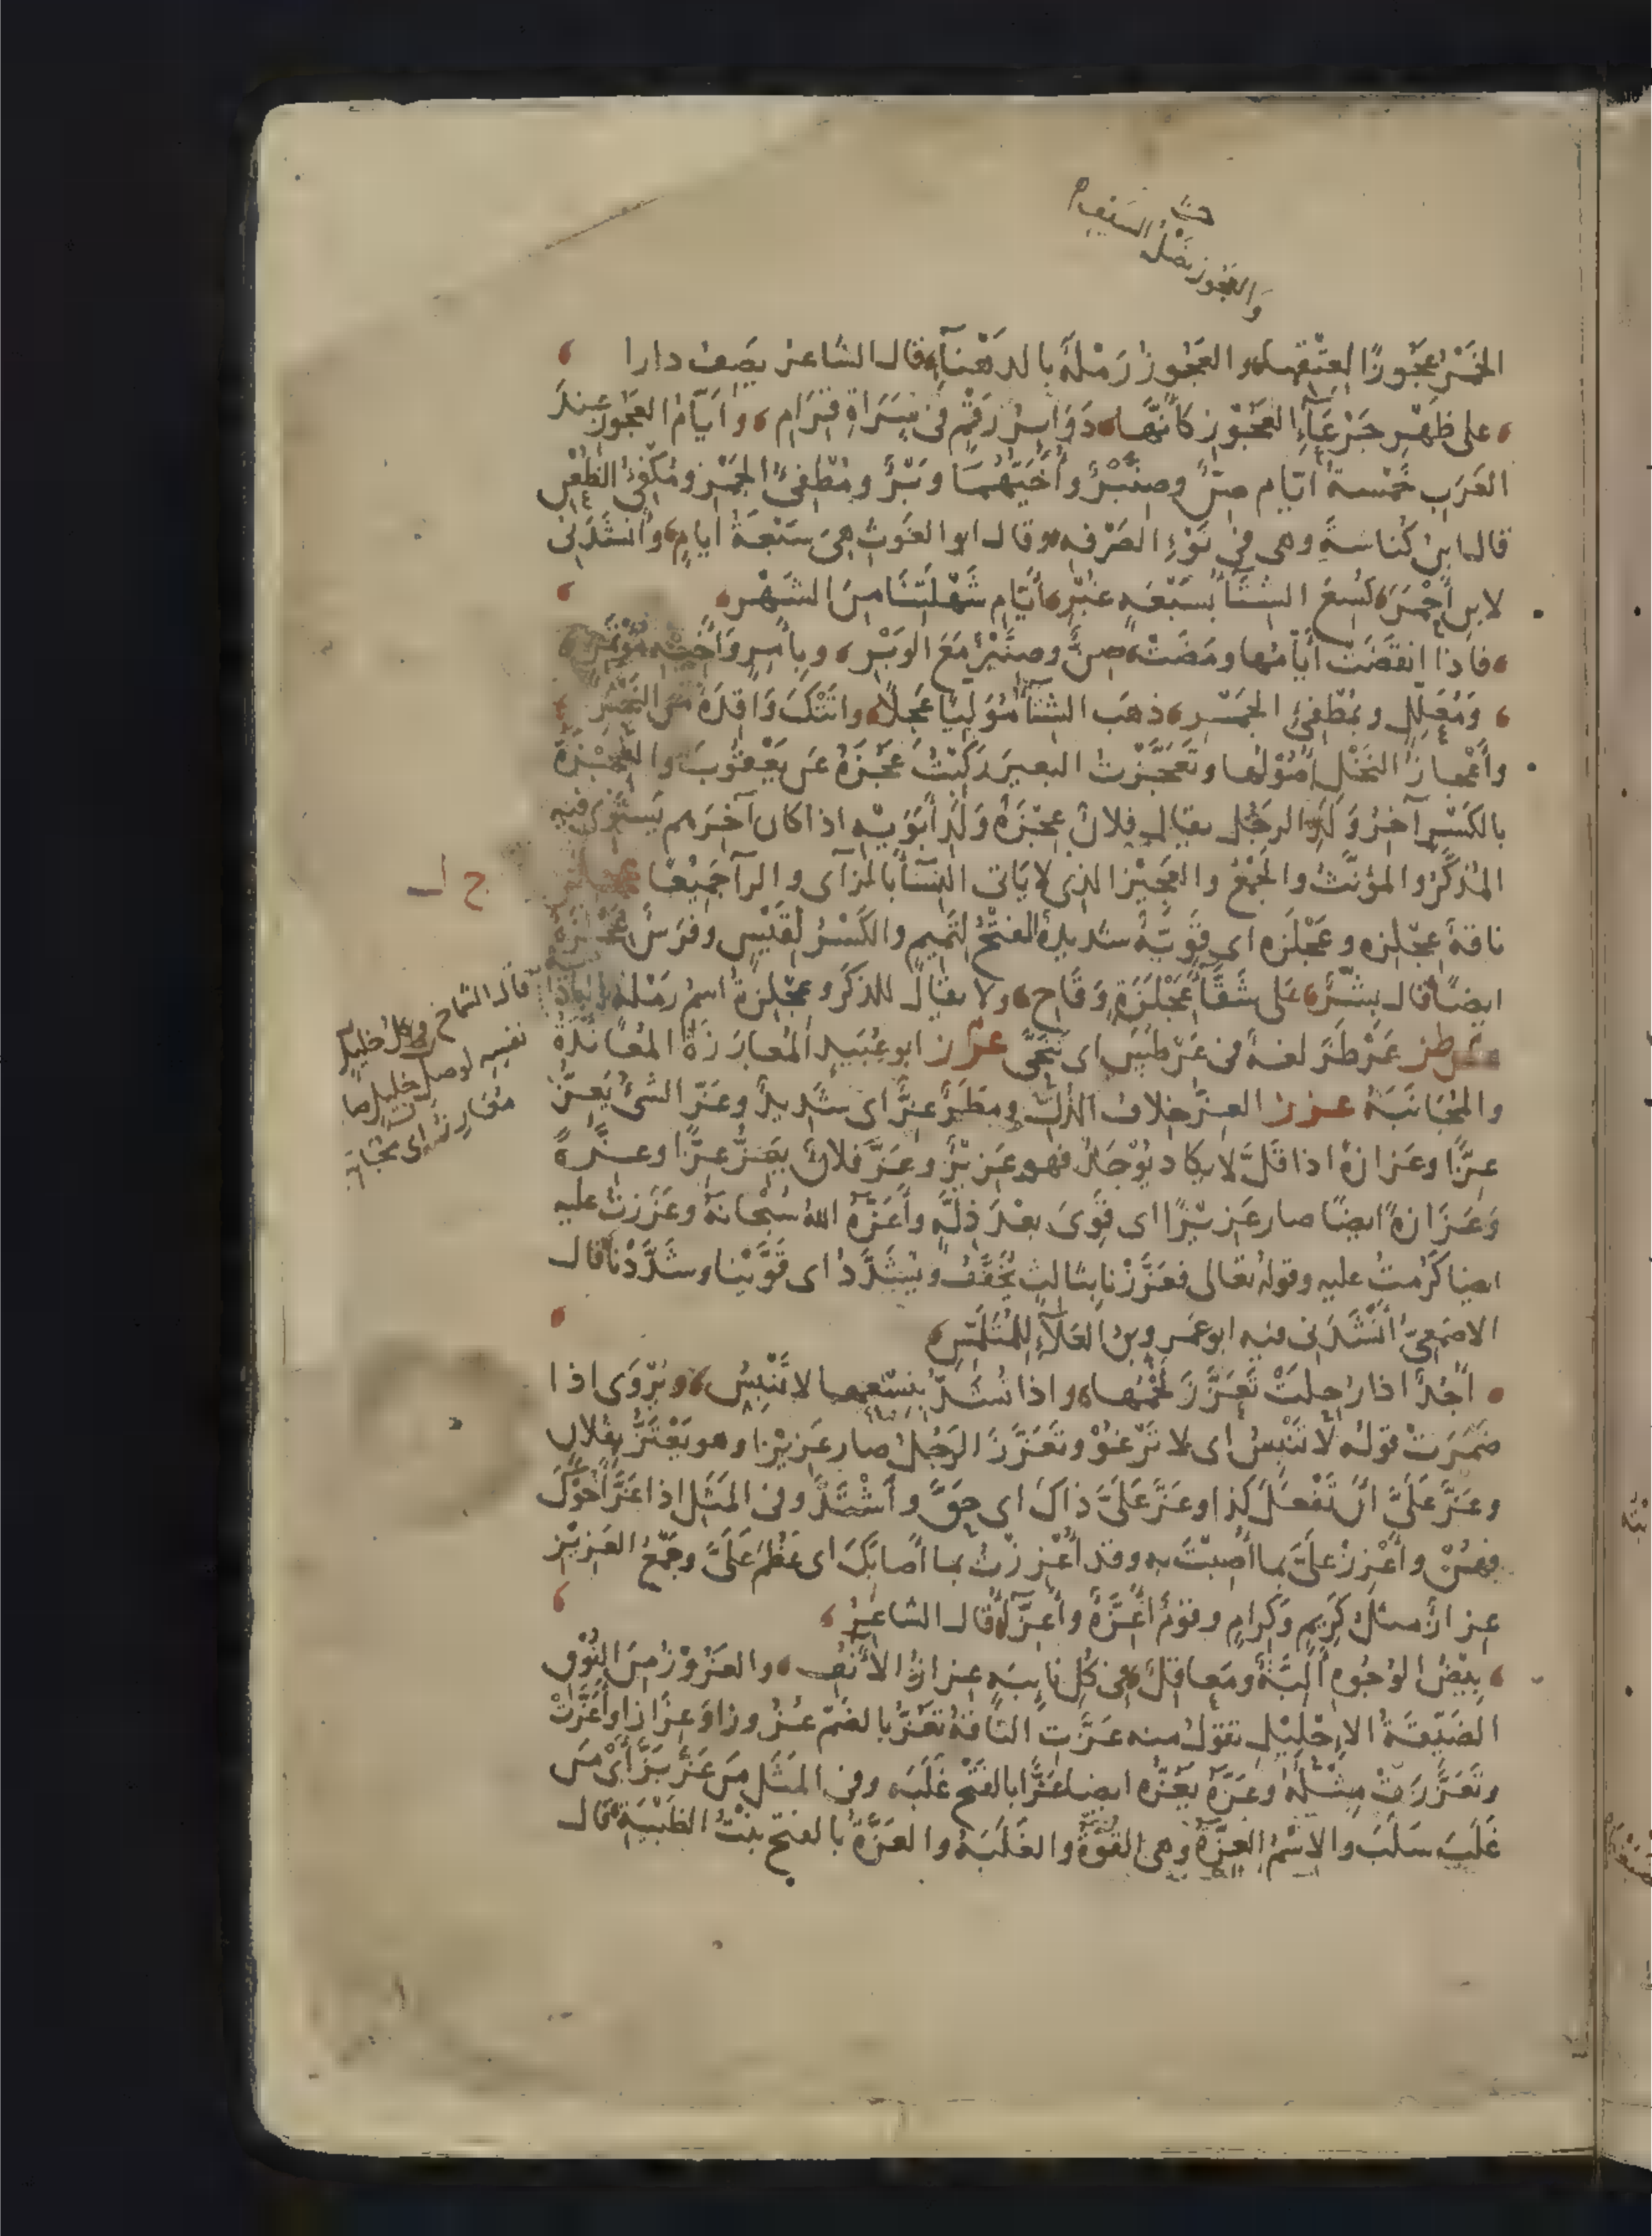 حـ
والعجوز نصل السيف
الخَمْرُ عَجُوزًا لِعِتْقِها والعَجُوزُ رَمْلَةٌ بالدَهْنَاءِ قال الشاعر يصف دارا
على ظَهْرِ جَرْعَاءِ العَجُوزِ كَأَنَّهَا دَوَائِرُ رَقْمٍ فى سَرَاةِ قِرَامِ وأَيَّامُ العَجُوز عند
العَرَبِ خَمْسة أيّام صِنٌّ وصِنَّبْرٌ وأُخَيُّهُما وَبْرٌ ومُطْفِئُ الجَمْر ومُكْفِئُ الظُعْنِ
قال ابن كُناسَةَ وهى فى نَوْءِ الصَرْفَه وقال ابو الغَوْثِ هِىَ سَبْعَةُ ايام وأنشدنى
لابن أحمر كُسِعَ الشتاءُ بِسَبْعَهٍ غُبْرِ أَيَّامِ شَهْلَتِنَا مِنَ الشَهْر
فاذا انقَضَتْ أَيَّامُها ومَضَتْ صِنٌّ وصِنَّبْرٌ مَعَ الوَبْر وبآمِرٍ وأُخَيِّهِ مُؤْتَمِرٍ
ومُعَلِّلٍ وبمُطْفِئِ الجَمْر ذهَبَ الشتاءُ مُوَلِّيًا عَجِلًا واتتك وَاقِدَة من النجر
وأعْجازُ النَخْلِ أُصُولُها وتَعَجَّزْتُ البعيرَ رَكِبْتُ عَجُزَهُ عن يَعْقُوبَ والعِجْزَةُ
بالكَسْرِ آخِرُ وَلَدِ الرجُل يقال فلانٌ عِجْزَةُ وَلَدِ أَبَوَيْهِ اذا كان آخِرَهم يَستَوِى فيه
المُذَكَّرُ والمُؤَنَّثُ والجَمْعُ والعَجِيْزُ الذى لا يَأتى النِسَاءَ بالزاى والرا جَمِيْعًا عجلز
ح ل
ناقةٌ عِجْلِزه وعَجْلَزه اى قَوِيَّةٌ شديدةٌ الفَتْحُ لتَميمٍ والكَسْرُ لقَيْسٍ وفَرَسٌ عجلزة
ايضًا قال بِشْرٌ على شَقَّاءَ عِجْلِزَةٍ وَقَاحِ ولا يقال للذَكَر وعِجْلِزةُ اسمُ رَمْلة بالباديه
عرطز عَرْطَزَ لغةٌ فى عَرْطَسَ اى تَنَحَّى عرز ابو عُبَيدٍ المُعَارَزَةُ المُعانَدَةُ
والمُجَانَبَةُ عزز العِزُّ خلاف الذُلِّ ومطَرٌ عِزٌّ اى شَدِيدٌ وعَزَّ الشئُ يَعِزُّ
عِزًّا وعَزَازةً اذا قَلَّ لا يكاد يُوْجَدُ فهو عَزِيزٌ وعَزَّ فلانٌ يَعِزُّ عِزًّا وعِزَّةً
وعَزَازةً ايضا صار عَزيزًا اى قَوِىَ بعْدَ ذِلّهٍ وأَعَزَّهُ اللهُ سُبْحانَهُ وعَزَزتُ عليه
ايضا كَرُمتُ عليه وقولهُ تعالى فعَزَّزْنا بثالثٍ يُخَفَّفُ ويُشَدَّدُ اى قَوَّيْنا وشَدَّدْنا قال
الاصمَعِىُّ أنْشَدَنى فيه ابو عَمرو بنُ العَلَاءِ للمُتَلَمّس
أُجُدٌ اذا رُحِلَتْ تَعَزَّزَ لَحْمُها واذا تُشَدُّ بِنِسْعِها لا تَنْبِسُ ويُرْوَى اذا
ضَمَرَتْ قوله لا تَنْبِسُ اى لا تَرْغُوْ وتَعَزَّزَ الرَجُلُ صار عَزِيْزا وهو يَعْتَزُّ بفلان
وعَزَّ عَلَىَّ انْ تَفْعَلَ كذا وعَزَّ عَلَىَّ ذاكَ اى حَقَّ واشْتَدَّ وفى المثَل اذا عَزَّ أخوكَ
فهُنْ وأَعْزِزْ عَلَىَّ بما أُصِبْتَ به وقد أُعْزِزْتُ بما أصابَكَ اى عَظُمَ عَلَىَّ وجَمْعُ العَزِيْزِ
عِزازٌ مثل كَرِيمٍ وكِرامٍ وقومٌ أَعِزَّةٌ وأَعِزَّاءُ قال الشاعر
بِيْضُ الوُجُوه أَلِبَّةٌ ومَعاقِلٌ فى كُلِّ نايبَهٍ عِزازُ الأَنْفِ والعَزُوْزُ مِنَ النُوْقِ
الضَيّقةُ الاِحْلِيْلِ تقول منه عَزَّتِ الناقةُ تَعُزُّ بالضم عُزُوزا وعِزازا وأَعَزَّتْ
وتَعَزَّزَتْ مِثْلُهُ وعَزَّهُ يَعُزُّه ايضا عَزًّا بالفتْح غَلَبَه وفى المثَل مَن عَزَّ بَزَّ أَىْ مَن
غَلَبَ سَلَبَ والاسْمُ العِزَّةُ وهى القُوَّةُ والغَلَبَه والعَزَّةُ بالفتح بِنْتُ الظَبْيَةِ قال
قال الشماخ وكل خليل
نفسه لوصل خليل صا
معارزٌ اى مجانب